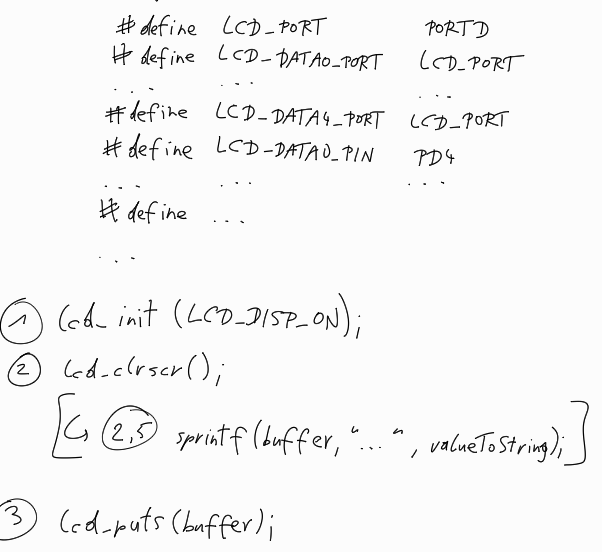 #define LCD_PORT PORTD
#define LCD_DATA0_PORT LCD_PORT
... ... ...
#define LCD_DATA4_PORT LCD_PORT
#define LCD_DATA0_PIN PD4
... ... ...
#define ...
...
1 lcd_init (LCD_DISP_ON);
2 lcd_clrscr();
[↳ 2,5 sprintf(buffer, "...", valueToString);]
3 lcd_puts(buffer);